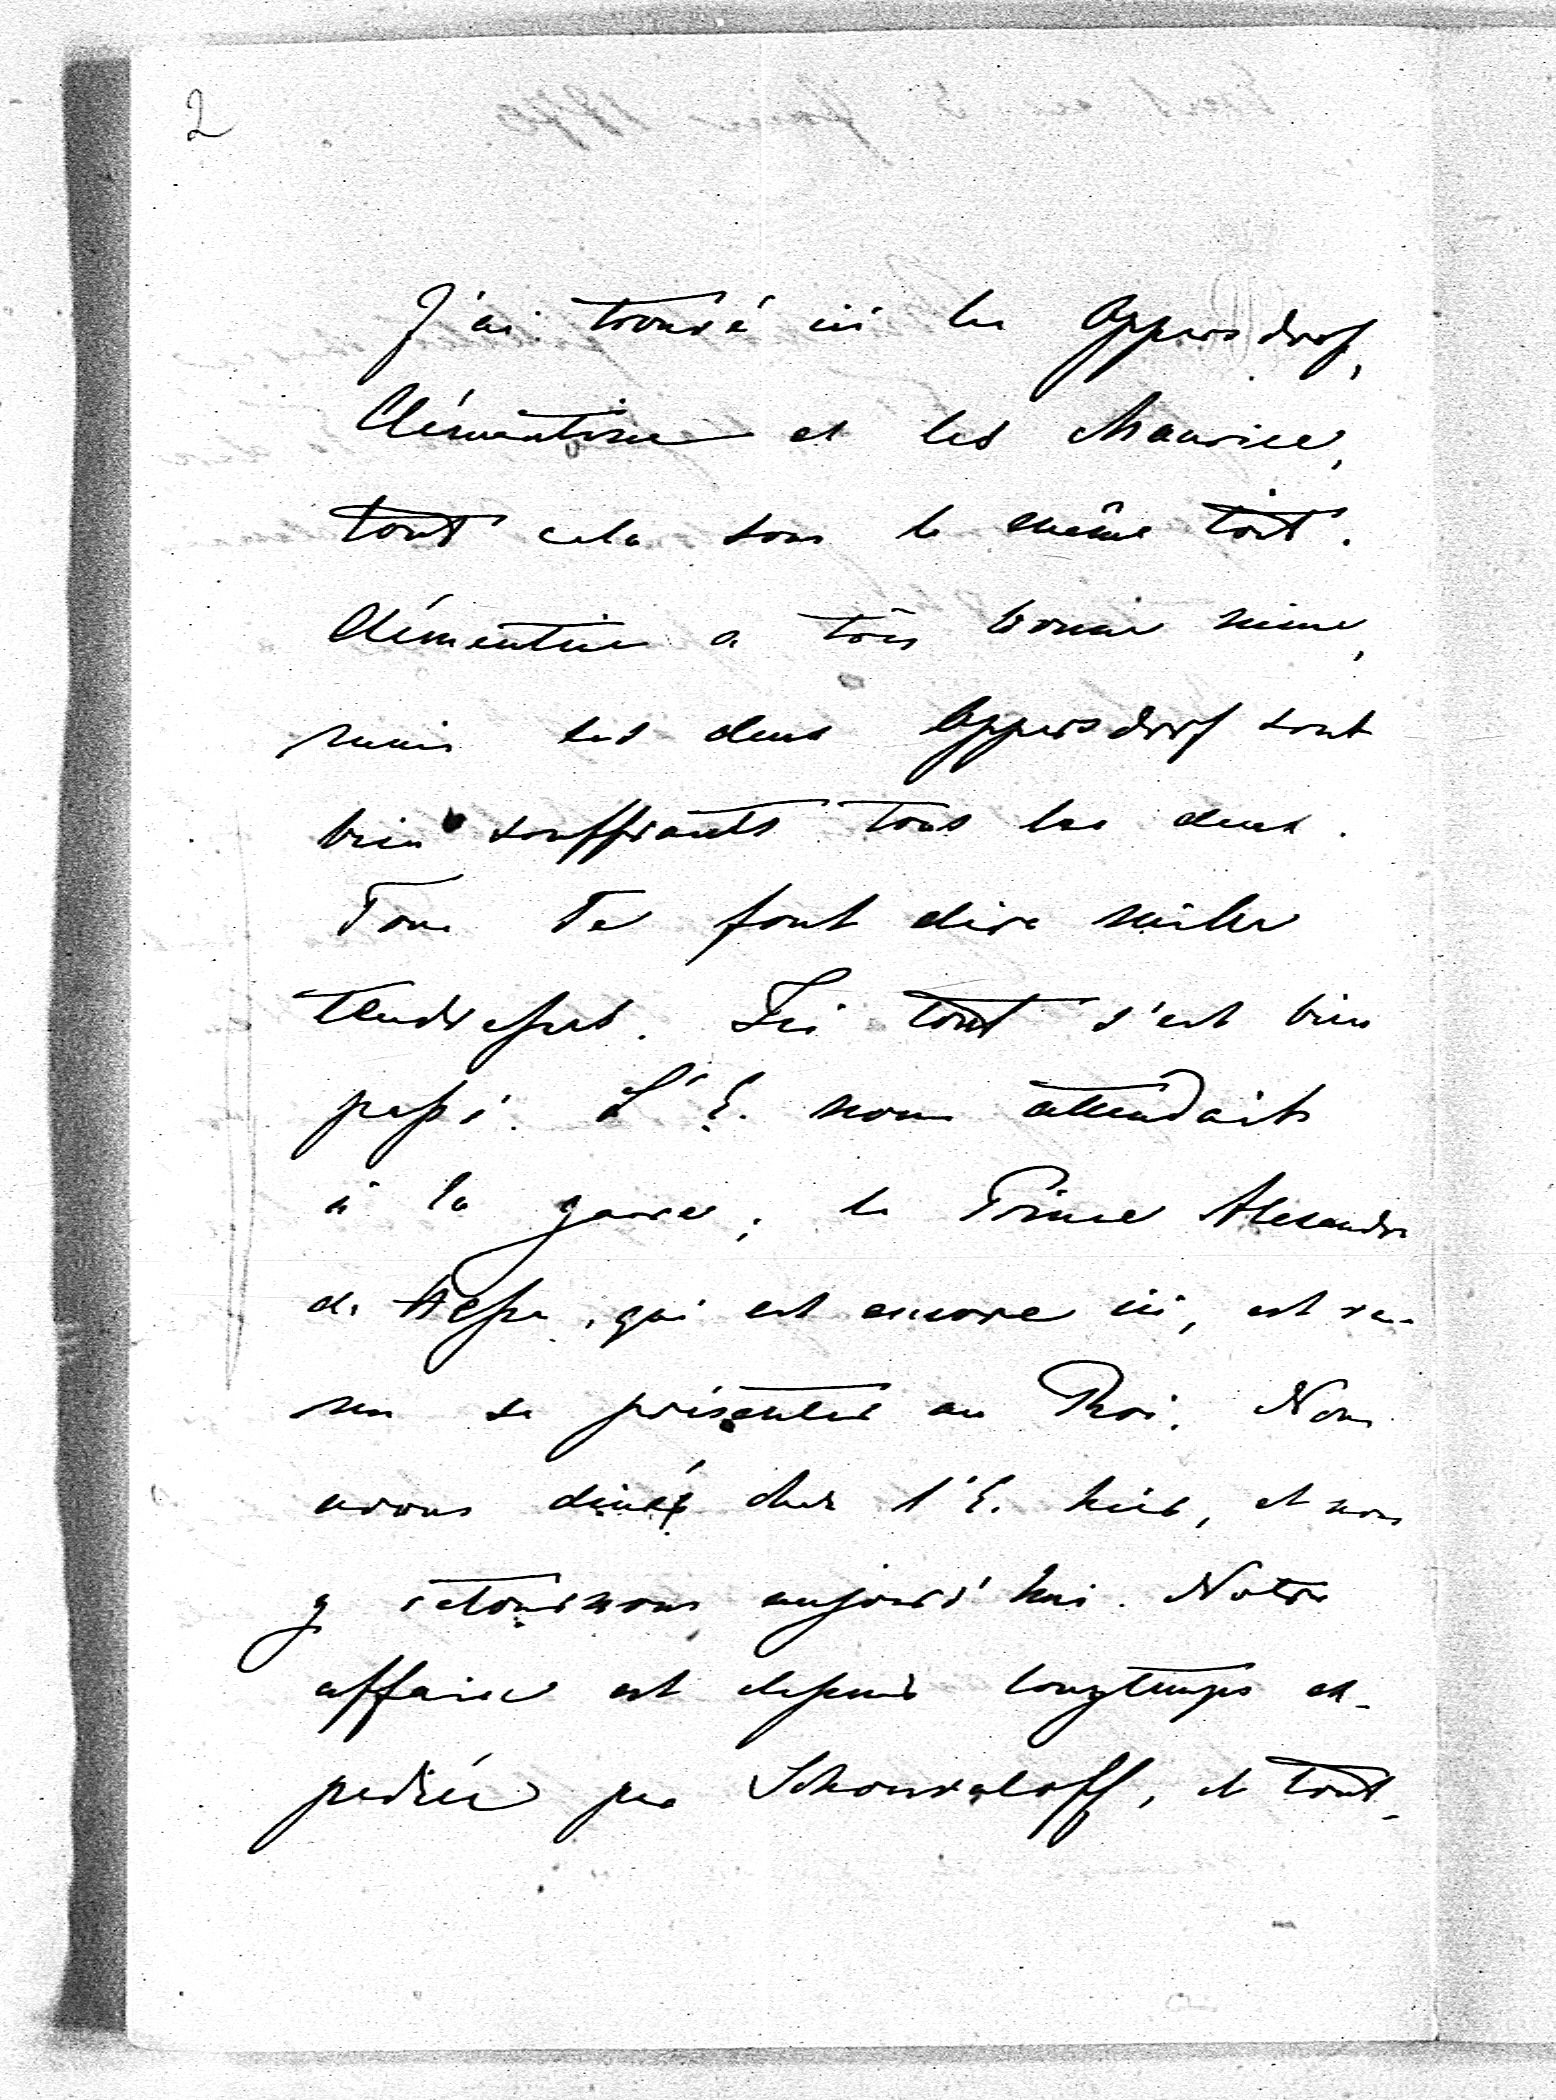 2
J'ai trouvé ici les Oppersdorf,
Clémentine et les Maurice,
tout cela sous le même toit.
Clémentine a très bonne mine,
mais les deux Oppersdorf sont
bien souffrants tous les deux.
Tous Te font dire mille
tendresses. Ici tout s'est bien
passé. L'E. nous attendait
à la gare; le Prince Alexandre
de Hesse, qui est encore ici, est ve-
nu se présenter au Roi. Nous
avons diné chez l'E. hier, et nous
y retournons aujourd'hui. Notre
affaire est depuis longtemps ex-
pediée par Schouvaloff, et tout-